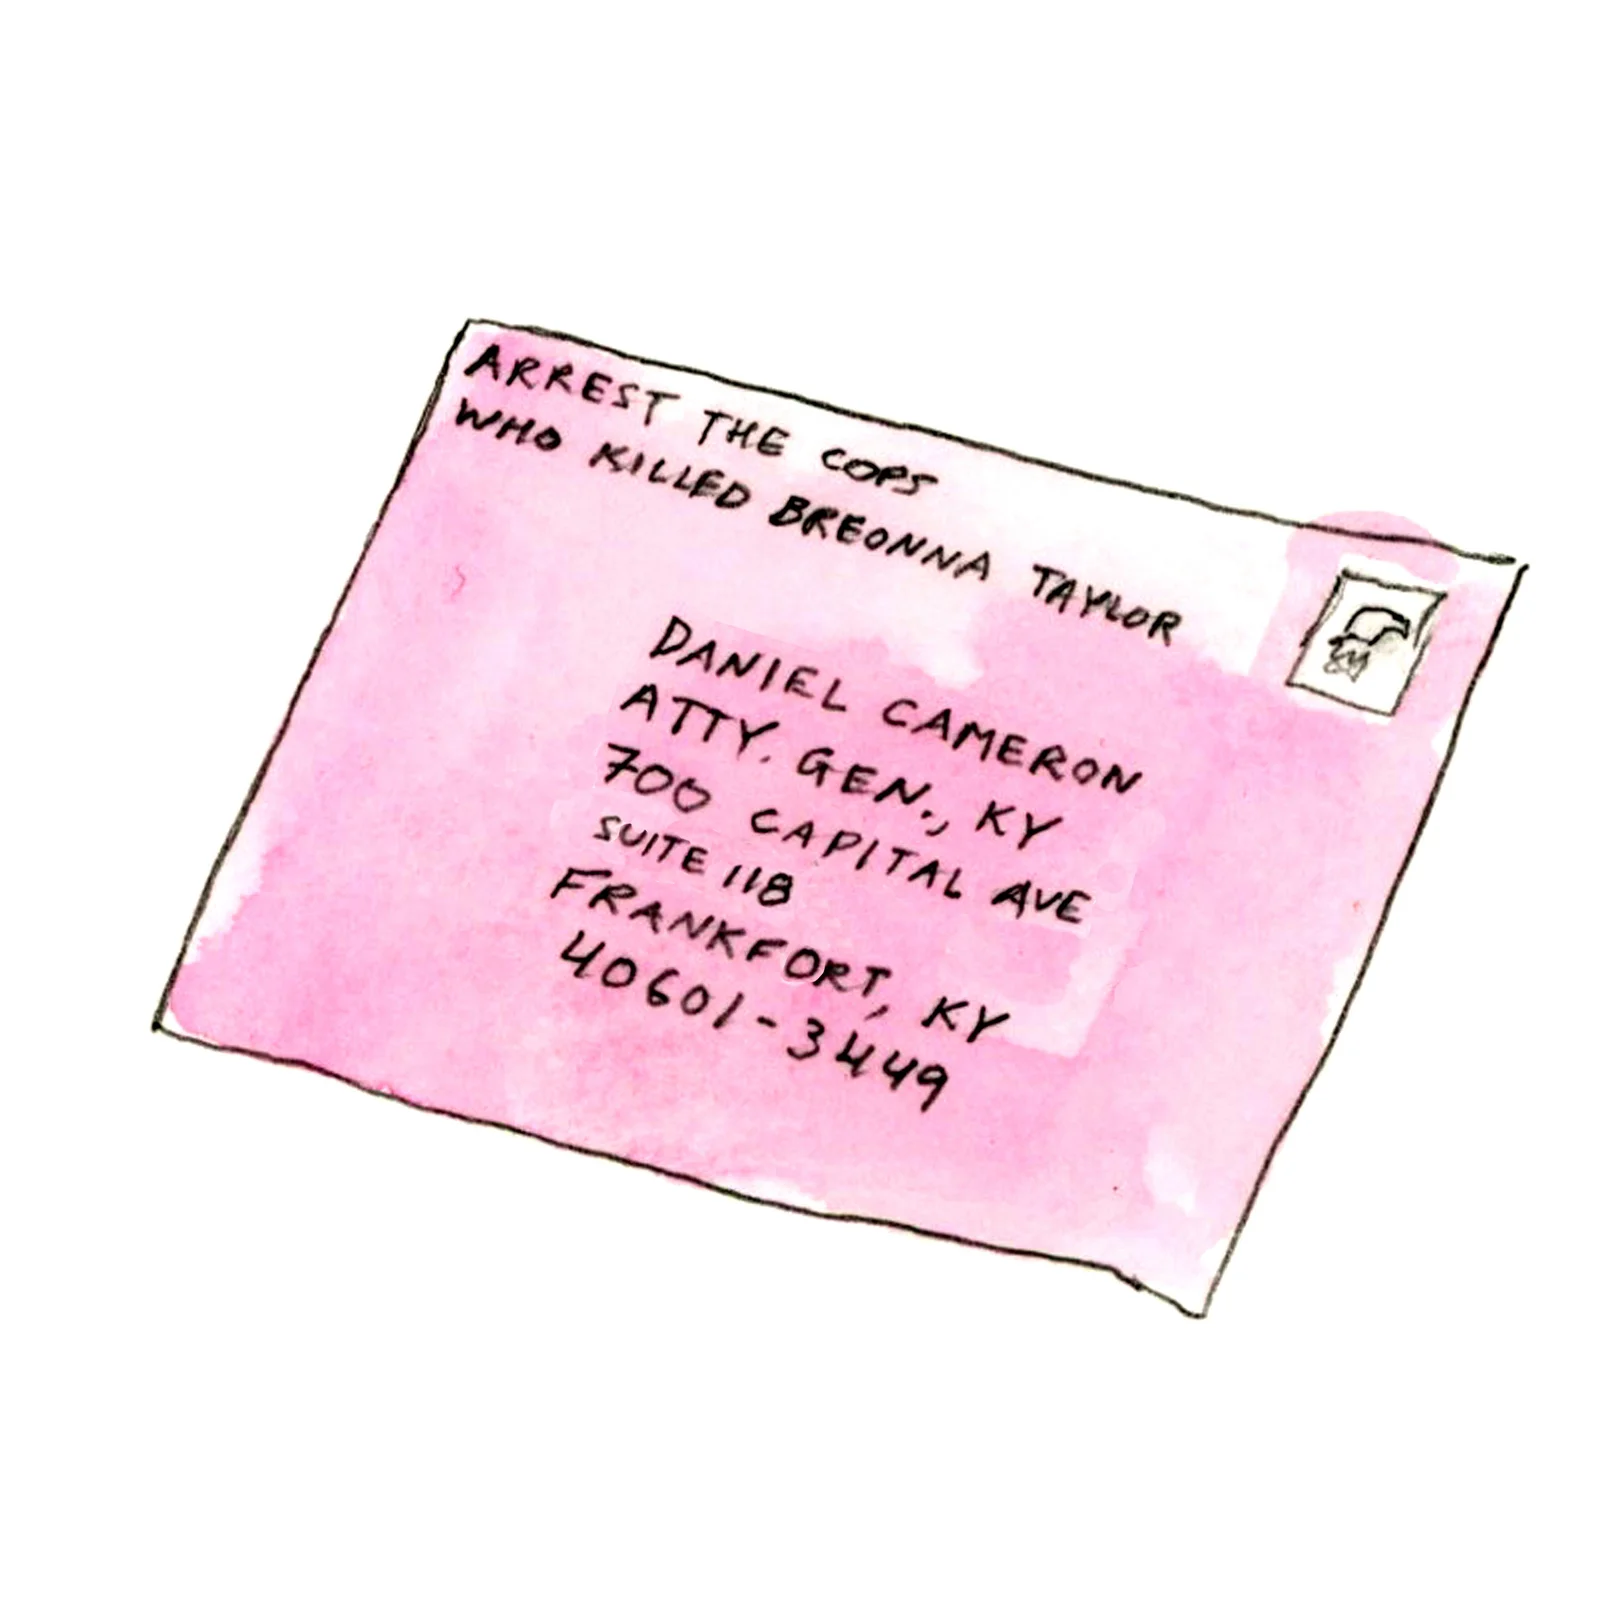 ARREST THE COPS
WHO KILLED BREONNA TAYLOR
DANIEL CAMERON
ATTY. GEN., KY
700 CAPITAL AVE
SUITE 118
FRANKFORT, KY
40601-3449